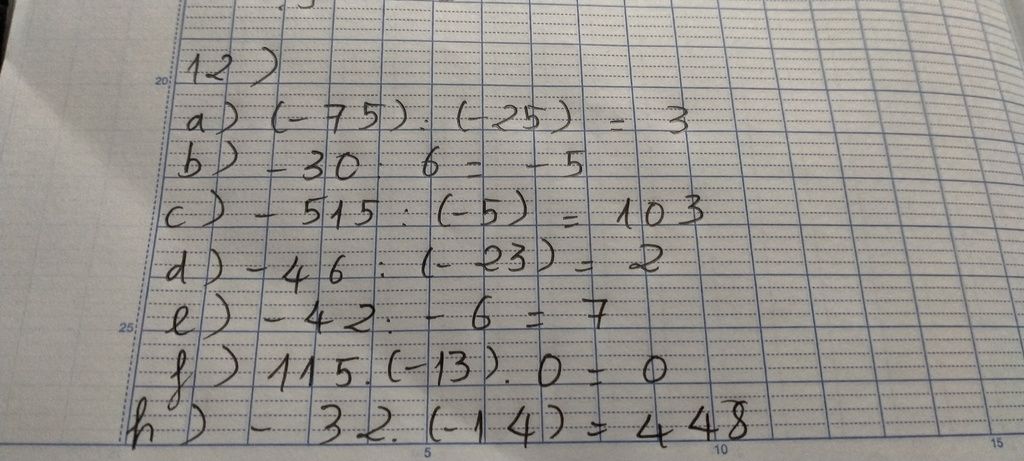 12)
20
a) (-75) : (-25) = 3
b) -30 : 6 = -5
c) -515 : (-5) = 103
d) -46 : (-23) = 2
e) -42 : -6 = 7
25
f) 115.(-13).0 = 0
h) -32.(-14) = 448
5 10 15